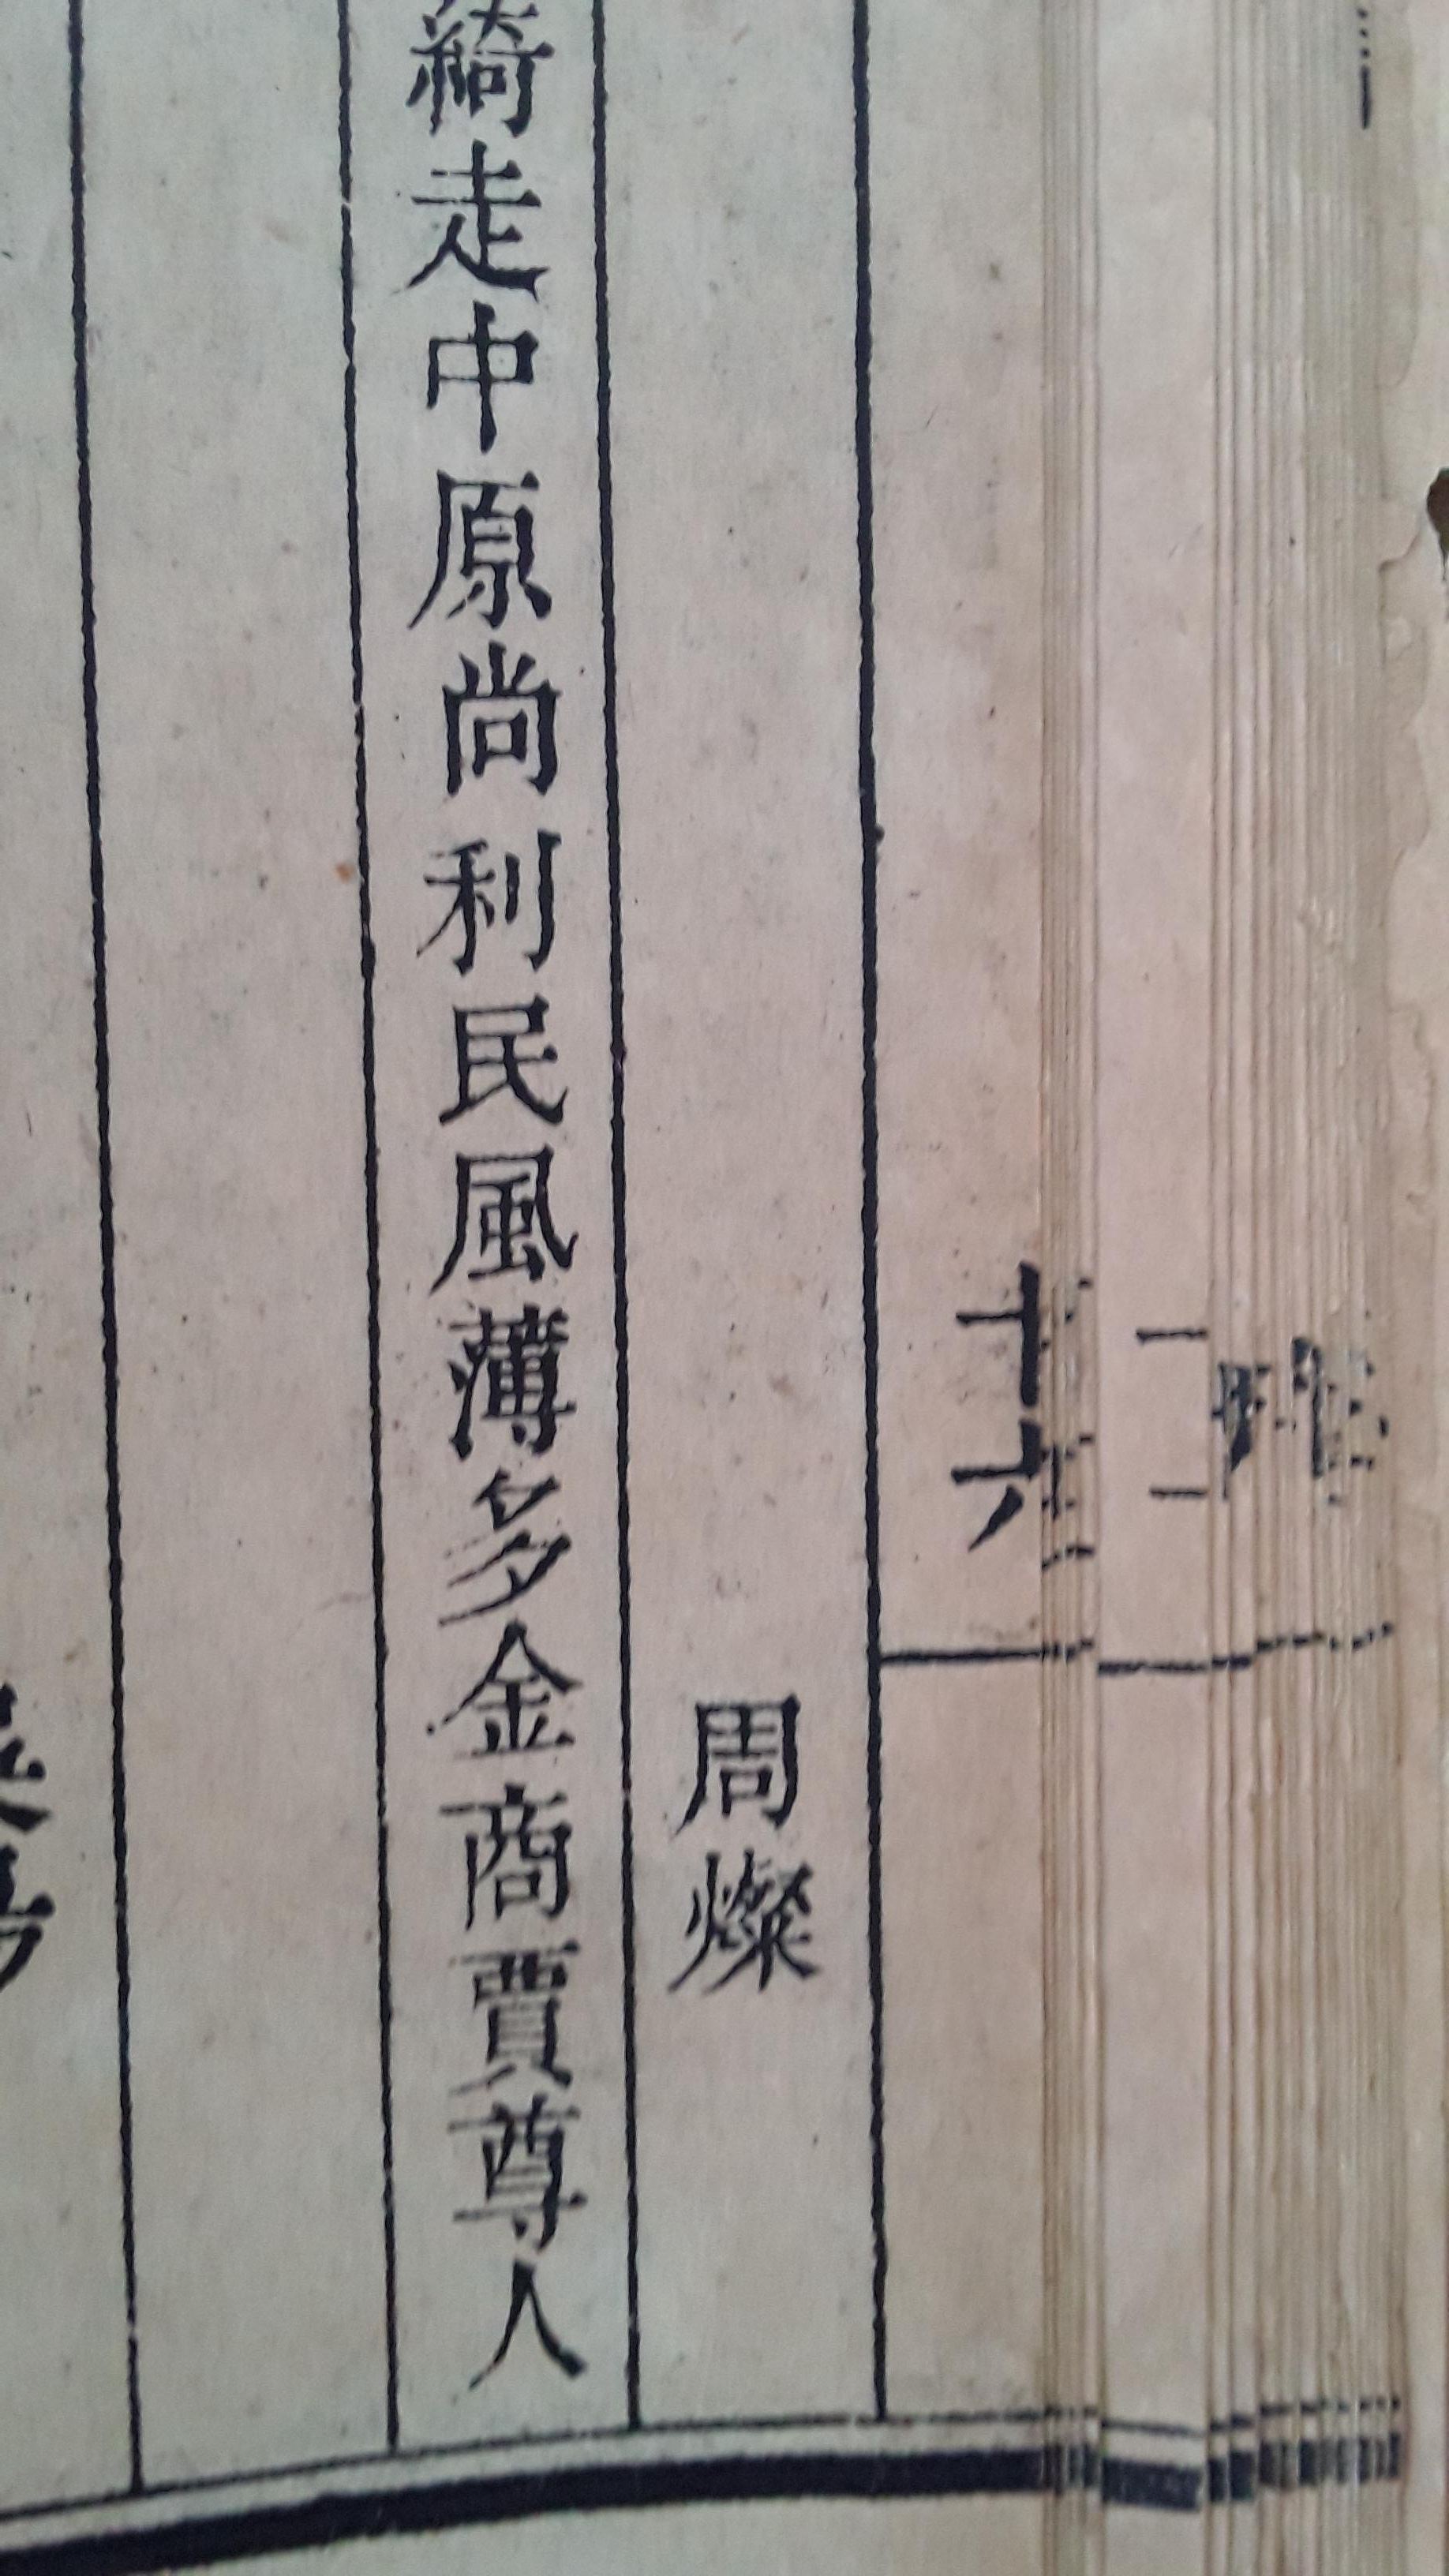 十六
周燦
綺走中原尚利民風薄多金商賈尊人